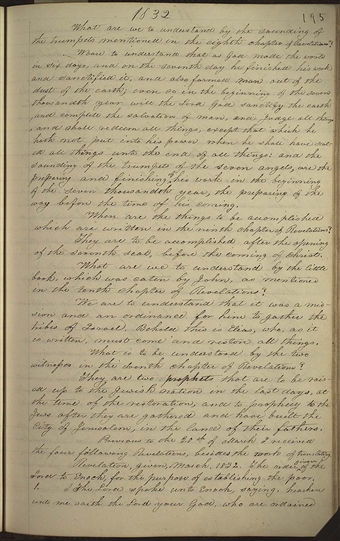 1832
195
What are we to understand by the sounding of
the trumpets mentioned in the eighth chapter of Revelations?
We are to understand that as God made the world
in six days, and on the seventh day he finished his work
and sanctified it, and also formed man out of the
dust of the earth; even so in the beginning of the seven
thousandth year will the Lord God sanctify the earth
and complete the salvation of man, and Judge all things
and shall redeem all things, except that which he
hath not put into his power when he shall have seal
ed all things unto the end of all things: and the
sounding of the trumpets of the seven angels, are the
preparing and finishing his work in the beginning
of the seven thousandth year, the preparing of the
way before the time of his coming.
When are the things to be accomplished
which are written in the ninth chapter of Revelations?
They are to be accomplished after the opening
of the seventh seal, before the coming of Christ.
What are we to understand by the little
book which was eaten by John, as mentioned
in the tenth chapter of Revelations?
We are to understand that it was a mis-
sion and an ordinance for him to gather the
tribes of Israel. Behold this is Elias, who, as it
is written, must come and restore all things.
What is to be understood by the two
witnesses in the eleventh chapter of Revelations?
They are two prophets that are to be rais-
ed up to the Jewish nation in the last days, at
the time of the restoration, and to prophesy to the
Jews after they are gathered and have built the
City of Jerusalem, in the land of their fathers.
Previous to the 20th of March I received
the four following Revelations, besides the work of translating
Revelation, given, March, 1832. The order of the
Lord to Enoch, for the purpose of establishing the poor,
The Lord spoke unto Enoch, saying, hearken
unto me saith the Lord your God, who are ordained